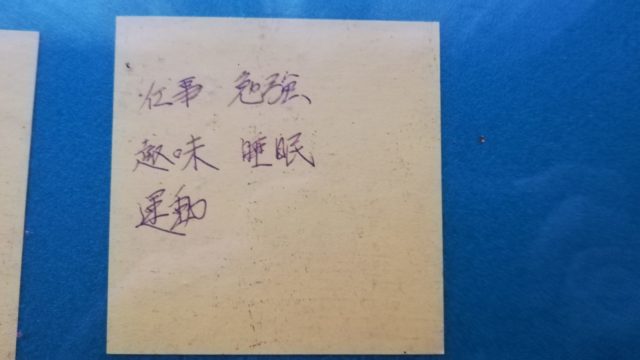 仕事 勉強
趣味 睡眠
運動